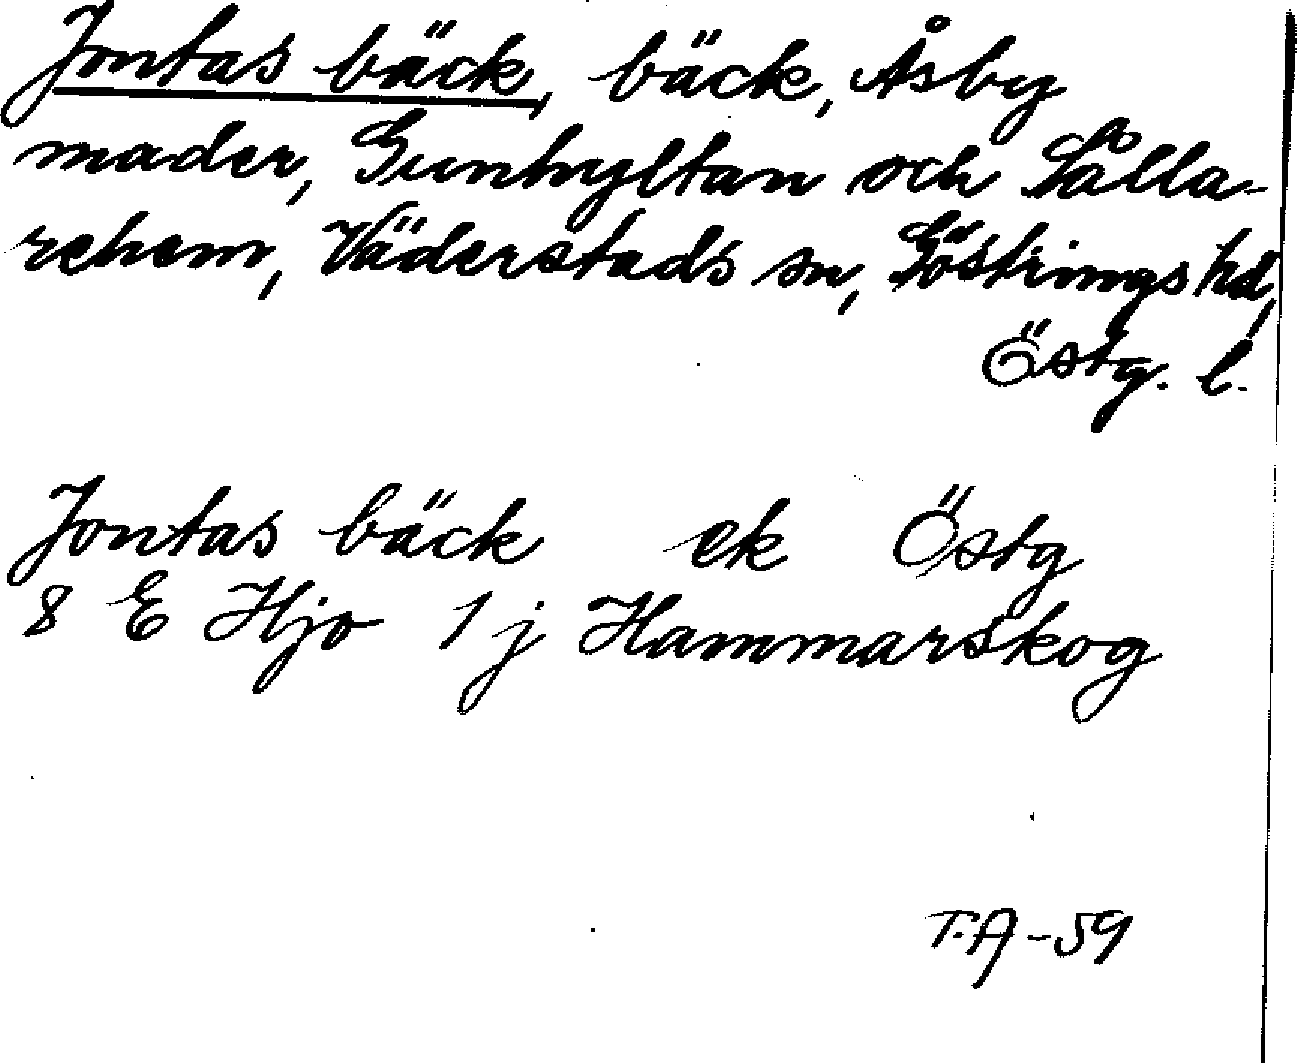 Jontas bäck, bäck, Åsby
mader, Gunhyltan och Sålla-
rehem, Väderstads sn, Göstrings hd,
Östg. l.
Jontas bäck ek Östg
8 E Hjo 1 j Hammarskog
T.A -59